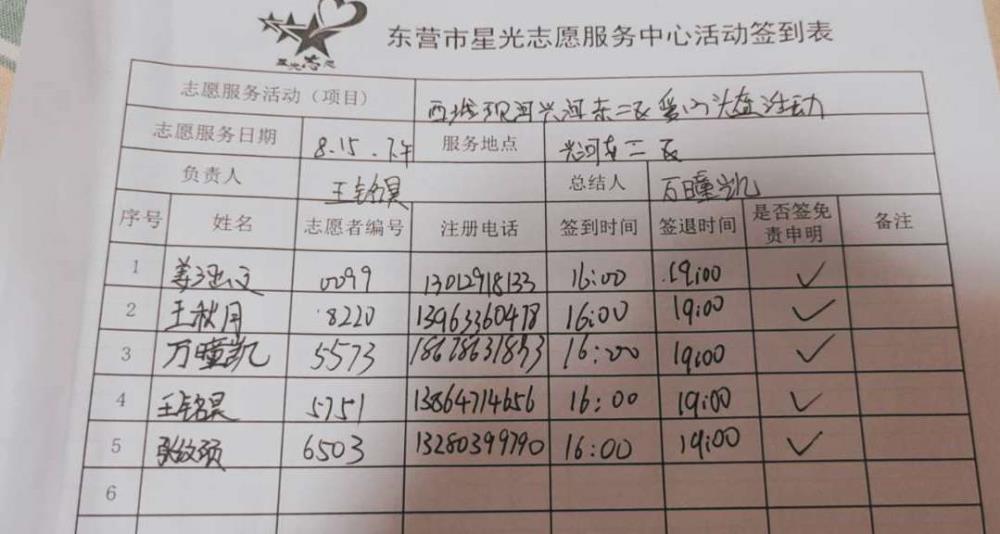 星光志愿
东营市星光志愿服务中心活动签到表
志愿服务活动（项目） 西城 兴河东二区爱心 活动
志愿服务日期 8.15.下午 服务地点 兴河东二区
负责人 王铭昊 总结人 万瞳凯
序号 姓名 志愿者编号 注册电话 签到时间 签退时间 是否签免责申明 备注
1 姜 文 0099 13012918133 16:00 19:00 ✓
2 王秋月 8220 13963360478 16:00 19:00 ✓
3 万瞳凯 5573 16:00 19:00 ✓
4 王铭昊 5751 13864714656 16:00 19:00 ✓
5 张纹硕 6503 13280399790 16:00 19:00 ✓
6